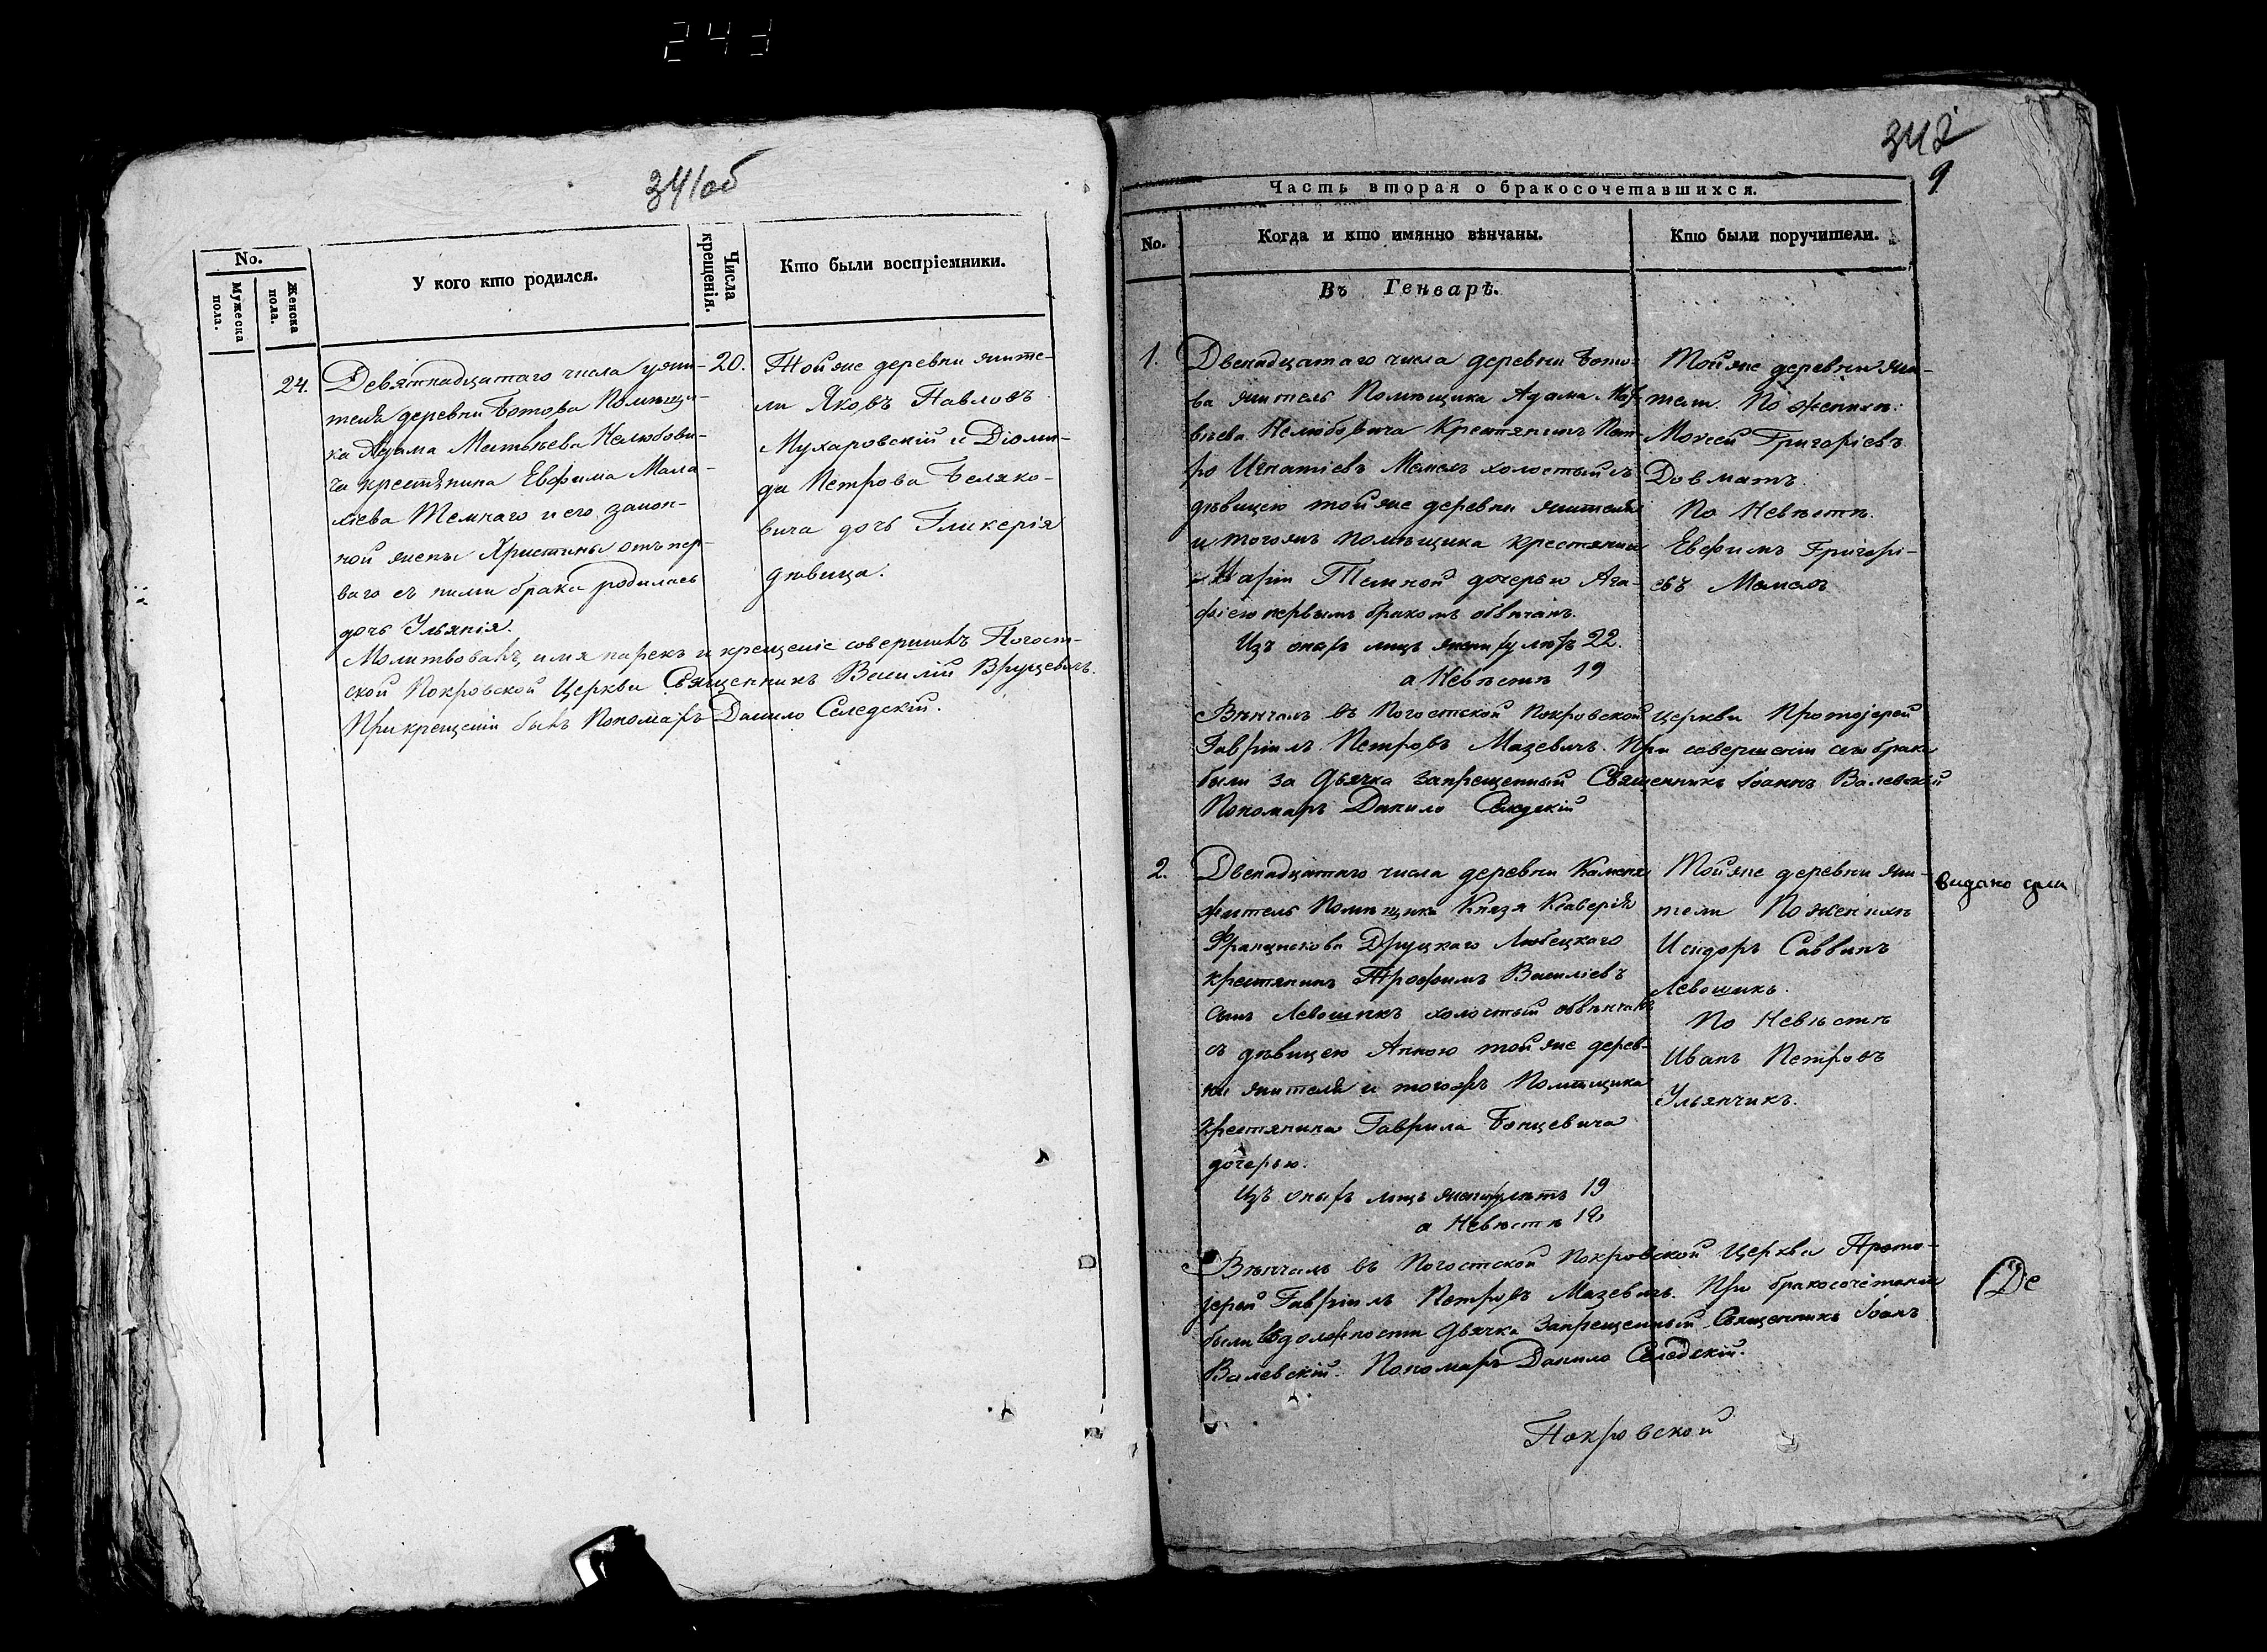 243
341об
No.
Мужеска пола.
Женска пола.
У кого кто родился.
Числа крещенія.
Кто были воспріемники.
24.
Девятнадцатаго числа у жи-
теля деревни Ботова Помѣщи-
ка Адама Матвѣева Нелюбови-
ча крестянина Евфима Мала-
хіева Темнаго и его закон-
ной жены Христины отъ пер-
ваго съ ними брака родилась
дочь Ульянія.
20.
Той же деревни жите-
ли Яковъ Павловъ
Мухаровскій и Діоми-
да Петрова Беляко-
вича дочь Гликерія
дѣвица.
Молитвовалъ, имя нарекъ и крещеніе совершилъ Погост-
ской Покровской Церкви Священникъ Василій Вруцевичъ.
При крещеніи былъ Пономарь Данило Селедскій.
342
9
Часть вторая о бракосочетавшихся.
No.
Когда и кто имянно вѣнчаны.
Кто были поручители.
Въ Генварѣ.
1.
Двенадцатаго числа деревни Бото-
ва житель Помѣщика Адама Мат-
вѣева Нелюбовича Крестянинъ Пет-
ро Игнатіевъ Мамай холостый съ
дѣвицею той же деревни жителя
и тогожъ помѣщика крестянина
Темной дочерью Ага-
фіею первымъ бракомъ обвѣнчан.
Изъ оныхъ лицъ жениху лѣтъ 22.
а Невѣстѣ 19
Той же деревни жи-
тели. По женихѣ:
Моисей Григоріевъ
Довматъ.
По Невѣстѣ.
Евфимъ Григорі-
евъ Мамай
Вѣнчалъ въ Погостской Покровской церкви Протоіерей
Гавріилъ Петровъ Мазевичъ. При совершеніи сего брака
были за Дьячка запрещенный Священникъ Іоаннъ Валевскій
Пономарь Данило Селедскій
2.
Двенадцатаго числа деревни Каменя
житель Помѣщика Князя Ксаверія
Францискова Друцкаго Любецкаго
крестянинъ Трофимъ Василіевъ
сынъ Левошикъ холостый обвѣнчанъ
съ дѣвицею Анною той же дерев-
ни жителя и тогожъ Помѣщика
крестянина Гаврила Бонцевича
дочерью.
Изъ оныхъ лицъ жениху лѣтъ 19
а Невѣстѣ
Той же деревни жи-
тели По женихѣ
Исидоръ Саввинъ
Левошикъ.
По Невѣстѣ
Иванъ Петровъ
Ульянчикъ.
Вѣнчалъ въ Погостской Покровской Церкви Прото-
іерей Гавріилъ Петровъ Мазевичъ. При бракосочетаніи
были въ должности Дьячка Запрещенный Священникъ Іоанъ
Валевскій. Пономарь Данило Селедскій.
Покровской